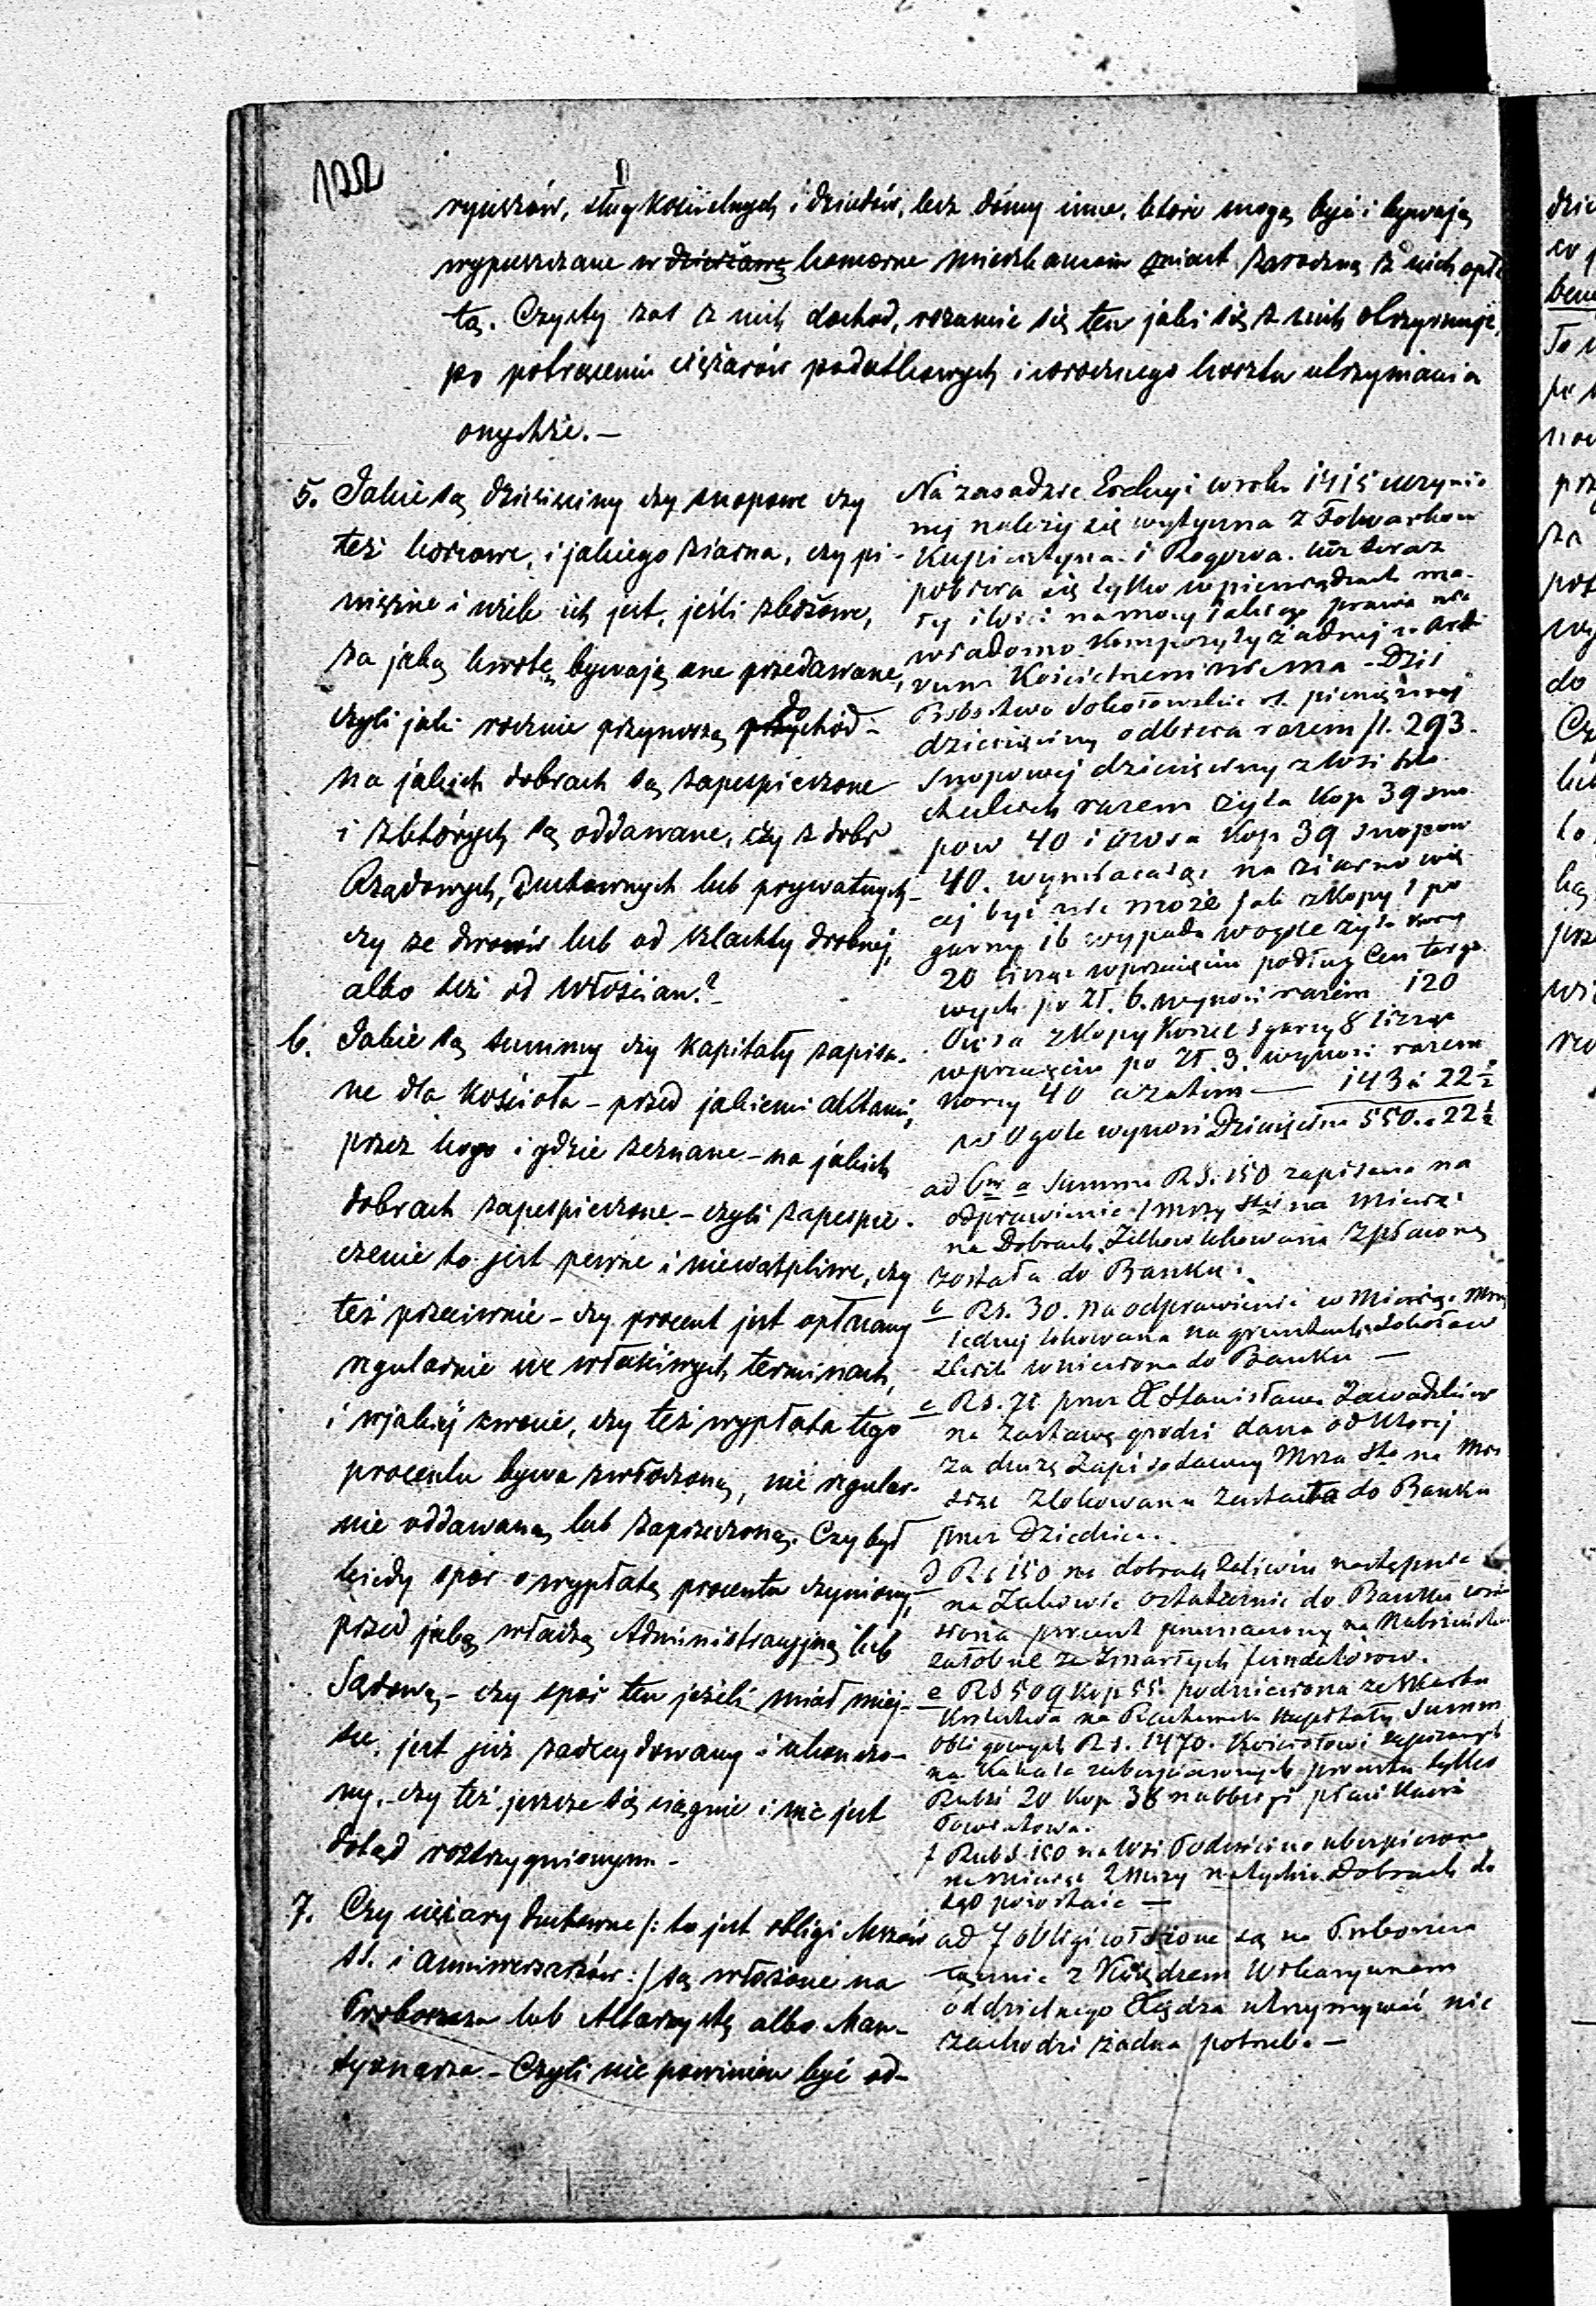 122
ryuszów, sług kościelnych i dziadów, lecz domy inne, które mogą być i bywają
wypuszczane w dzierżawę komorne mieszkaniom miast za roczną z nich opła
tą. Czysty zaś z nich dochód, rozumie się ten jaki się z nich otrzymuje,
po potrąceniu ciężarów podatkowych i corocznego kosztu utrzymania
onychże. —
5. Jakie są dziesięciny czy snopowe czy
też korcowe, i jakiego ziarna, czy pi-
eniężne i wiele ich jest, jeśli zbożowe,
za jaką kwotę bywają one przedawane,
czyli jaki rocznie przynoszą dochód –
na jakich dobrach są zapespieczone
i z których są oddawane, czy z dóbr
Rządowych, Duchownych lub prywatnych –
czy ze dworów lub od szlachty drobnéj,
albo też od włościan?
6. Jakie są summy czy kapitały zapisa-
ne dla kościoła – przed jakiemi aktami,
przez kogo i gdzie zeznane – na jakich
dobrach zapespieczone – czyli zapespie-
czenie to jest pewne i niewątpliwe, czy
też przeciwnie – czy procent jest opłacany
regularnie we właściwych terminach,
i w jakiéj kwocie, czy też wypłata tego
procentu bywa zwłoczoną, nie regular-
nie oddawaną lub zaprzeczoną. Czy był
kiedy spór o wypłatę procentu czyniony,
przed jaką władzą Administracyjną lub
Sądową – czy spór ten jeżeli miał miej-
sce, jest już zadecydowany i ukończo-
ny, – czy też jeszcze się ciągnie i nie jest
dotąd rozstrzygnionym –
7. Czy ciężary duchowne /: to jest obligi Mszów
SS. i anniwersarzów :/ są włożone na
Proboszcza lub Altarzystę albo Man-
syonarza – Czyli nie powinien być od-
Na zasadzie Erekcyi w roku 1415 uczynio
néj należy się wytyczna z Folwarków
i Rogowa. lecz teraz
pobiera się tylko w pieniądzach ma-
łéj ilości na mocy jakiego prawa nie
wiadomo Kompozyty żadnéj w Archi
vum Kościelnem nie ma – Dziś
Probostwo Sokołowskie st. pieniężnéj
dziesięciny odbiera razem fl. 293.
Snopowéj dziesięciny z Wsi
razem żyta Kop 39 sno
pów 40 i owsa Kop 39 snopów
40. wymłacając na ziarno wię
céj być nie może jak z kopy 1 po
garncy 16 wypada w ogóle żyta korcy
20 licząc w przecięciu podług Cen targo
wych po Zł. 6. wynosi razem 120
Owsa z Kopy Korzec 1 garncy 8 licząc
w przecięciu po Zł. 3. wynosi razem
korcy 40 a zatem — 143 „ 22 ½
w Ogóle wynosi Dziesięcina 550. „ 22 ½
ad 6m a Summa RS. 150 zapisana na
odprawienie 1 mszy Stéj na miesiąc
na Dobrach lokowana spłaconą
została do Banku.
b Rs. 30. na odprawienie w miesiąc Mszy
jednéj lokowana na gruntach Sokołow
skich wniesiona do Banku —
c Rs. 75 przez X Stanisława Zawadzkiego
na zastawę grodzi dana od któréj
za duszę Zapisodawcy Msza Sta na mie
siąc zlokowana została do Banku
przez Dziedzica.
d Rs 150 na dobrach następnie
na ostatecznie do Banku wnie
siona procent przeznaczony na Nabożeństwo
żałobne za Zmarłych fundatorów.
e RS 509 kop 55. podniesiona ze Skarbu
Królestwa na Rachunek kapitału Summ
obligowych Rs. 1470. Kościołowi zapisanych
na Kahale zabezpieczonych procentu tylko
Rubli 20 Kop 38 na obligi płaci Kassa
Powiatowa.
f Rub S. 150 na Wsi ubezpieczona
na miesiąc 2 Mszy na tychże Dobrach do
tąd pozostaje —
ad 7 obligi włożone są na Proboszcza
łącznie z Księdzem Wikaryuszem
oddzielnego Xiędza utrzymywać nie
zachodzi żadna potrzeba. —